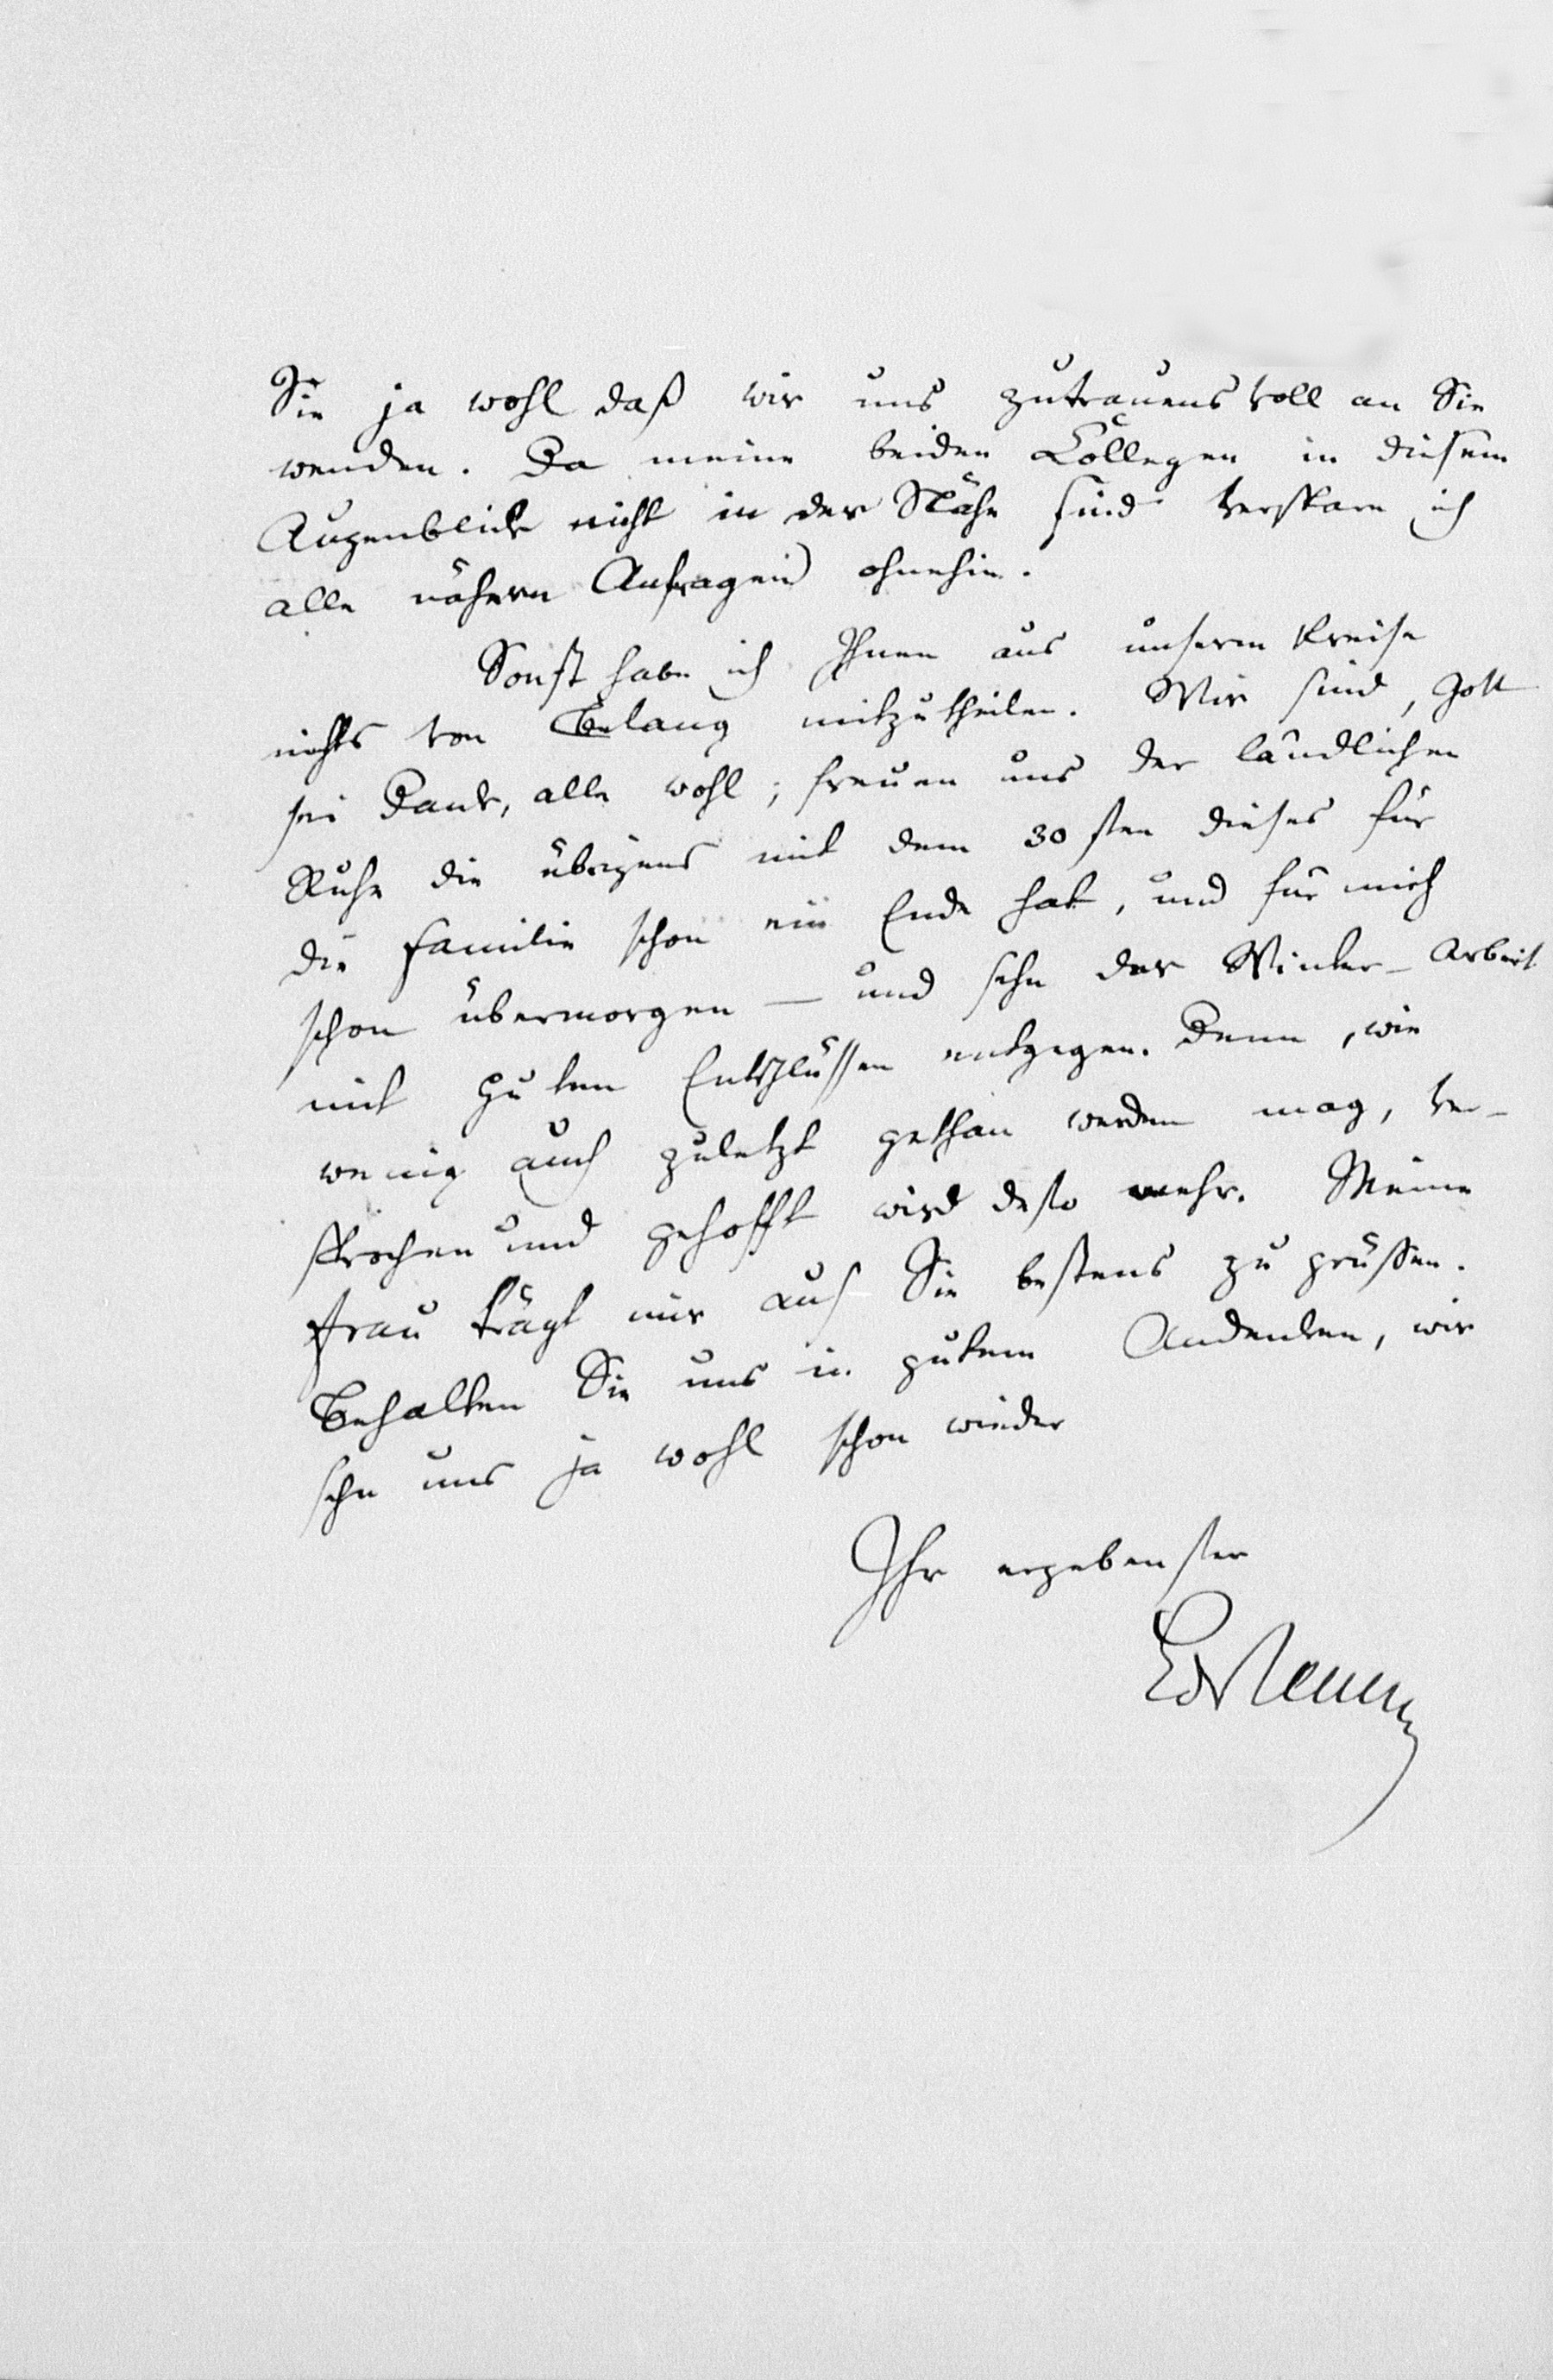 Sie ja wohl daß wir uns zutrauensvoll an Sie
wenden. Da meine beiden Collegen in diesem
Augenblick nicht in der Nähe sind verspare ich
alle nähern Anfragen ohnehin.
Sonst habe ich Ihnen aus unserm Kreise
nichts von Belang mitzutheilen. Wir sind, Gott
sei Dank, alle wohl; freuen uns der ländlichen
Ruhe die übrigens mit dem 30sten dieses für
die Familie schon ein Ende hat, und für mich
schon übermorgen — und sehn der Winter-Arbeit
mit guten Entschlüssen entgegen. Denn, wie
wenig auch zuletzt gethan werden mag, ver-
sprochen und gehofft wird desto mehr. Meine
Frau trägt mir auf Sie bestens zu grüßen.
Behalten Sie uns in gutem Andenken, wir
sehn uns ja wohl schon wieder
Ihr ergebenster